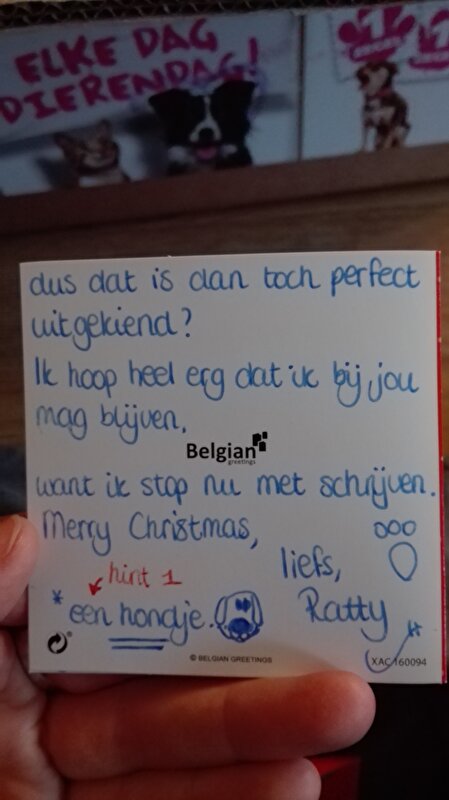 ELKE DAG
DIERENDAG!
dus dat is dan toch perfect
uitgekiend?
Ik hoop heel erg dat ik bij jou
mag blijven,
Belgian
greetings
want ik stop nu met schrijven.
Merry Christmas,
liefs,
hint 1
* een hondje.
Ratty
*
® 
© BELGIAN GREETINGS
XAC 160094